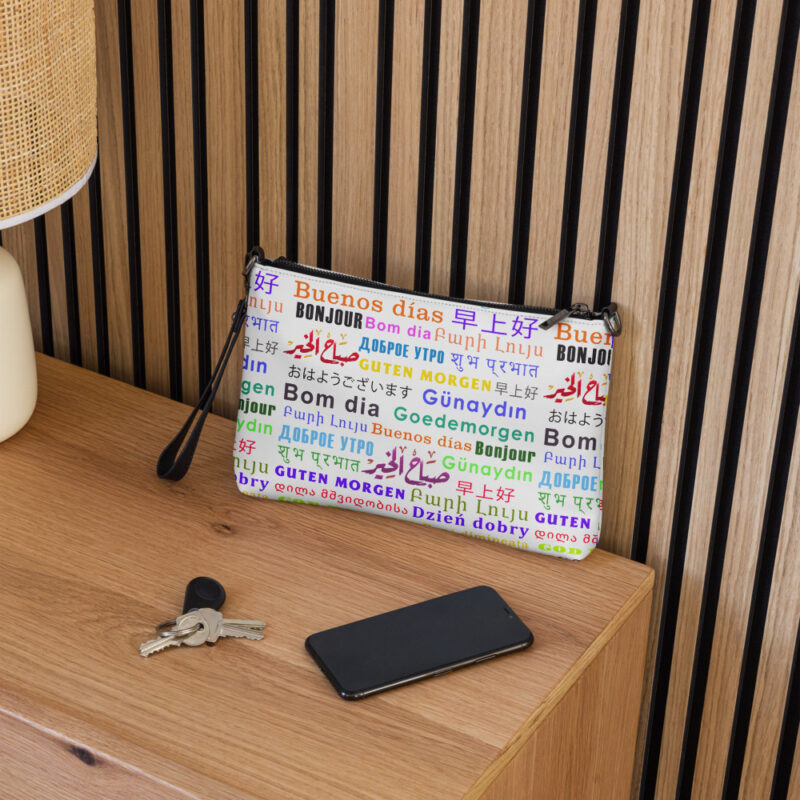 好 Buenos días 早上好 Buen
Լույս BONJOUR Bom dia Բարի Լույս BONJOUR
প্রभात صباح الخير ДОБРОЕ УТРО शुभ प्रभात صباح الخير
早上好 GUTEN MORGEN 早上好
dın おはようございます Günaydın おはよう
gen Bom dia Goedemorgen Bom
njour Բարի Լույս Buenos días Bonjour Բարի
ydın ДОБРОЕ УТРО Günaydın ДОБРОЕ
好 शुभ प्रभात صباح الخير 早上好 शुभ प्र
ույս GUTEN MORGEN Բարի Լույս GUTEN
bry დილა მშვიდობისა Dzień dobry დილა მშვ
GOD